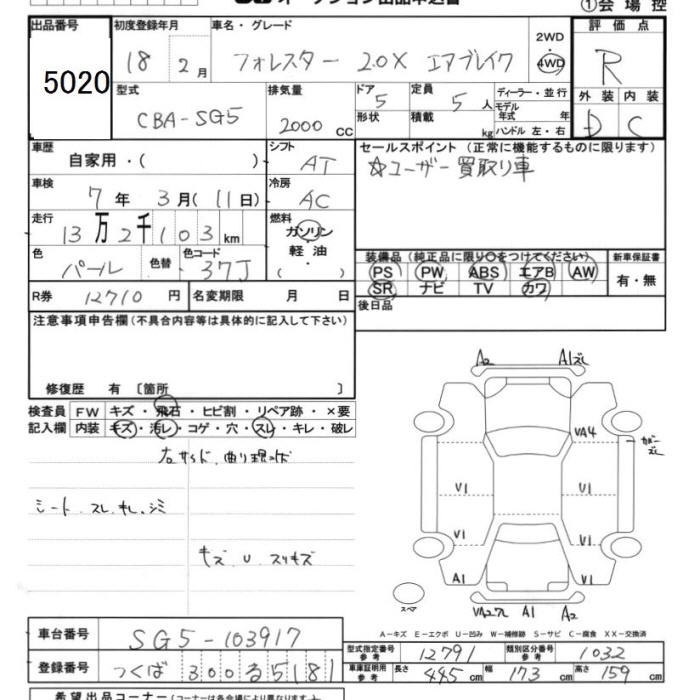 ①会場控
出品番号 初度登録年月 車名・グレード 評価点
5020 18 2月 フォレスター 2.0X エアブレイク 2WD 4WD R
型式 排気量 ドア 定員 ディーラー・並行 外装 内装
CBA-SG5 2000 CC 5 5人 モデル年式 年 D C
形状 積載 kg ハンドル 左・右
車歴 シフト セールスポイント (正常に機能するものに限ります)
自家用・( ) AT ☆ユーザー買取り車
車検 冷房
7年 3月(11日) AC
走行 燃料
13万2千103km ガソリン 軽油 ( ・ )
色 色替 色コード 装備品 (純正品に限り○をつけてください) 新車保証書
パール 37J PS PW ABS エアB AW 有・無
SR ナビ TV カワ
R券 12710円 名変期限 月 日 後日品
注意事項申告欄 (不具合内容等は具体的に記入して下さい)
修復歴 有 〔箇所 〕
検査員 FW キズ・飛石・ヒビ割・リペア跡・×要
記入欄 内装 キズ・汚レ・コゲ・穴・スレ・キレ・破レ
右サイド、曲り
シート、スレ、キレ、シミ
キズ U スリキズ
A2 A1ズレ
VA4
ガバーズレ
V1 V1
V1 V1
A1 A1
スペア
VA27L A1 A2
A-キズ E-エクボ U-凹み W-補修跡 S-サビ C-腐食 XX-交換済
車台番号 SG5-103917
登録番号 つくば 300 る 5181
型式指定番号 参考 12791 類別区分番号 参考 1032
車庫証明用 参考 長さ 445cm 幅 173cm 高さ 159cm
希望出品コーナー